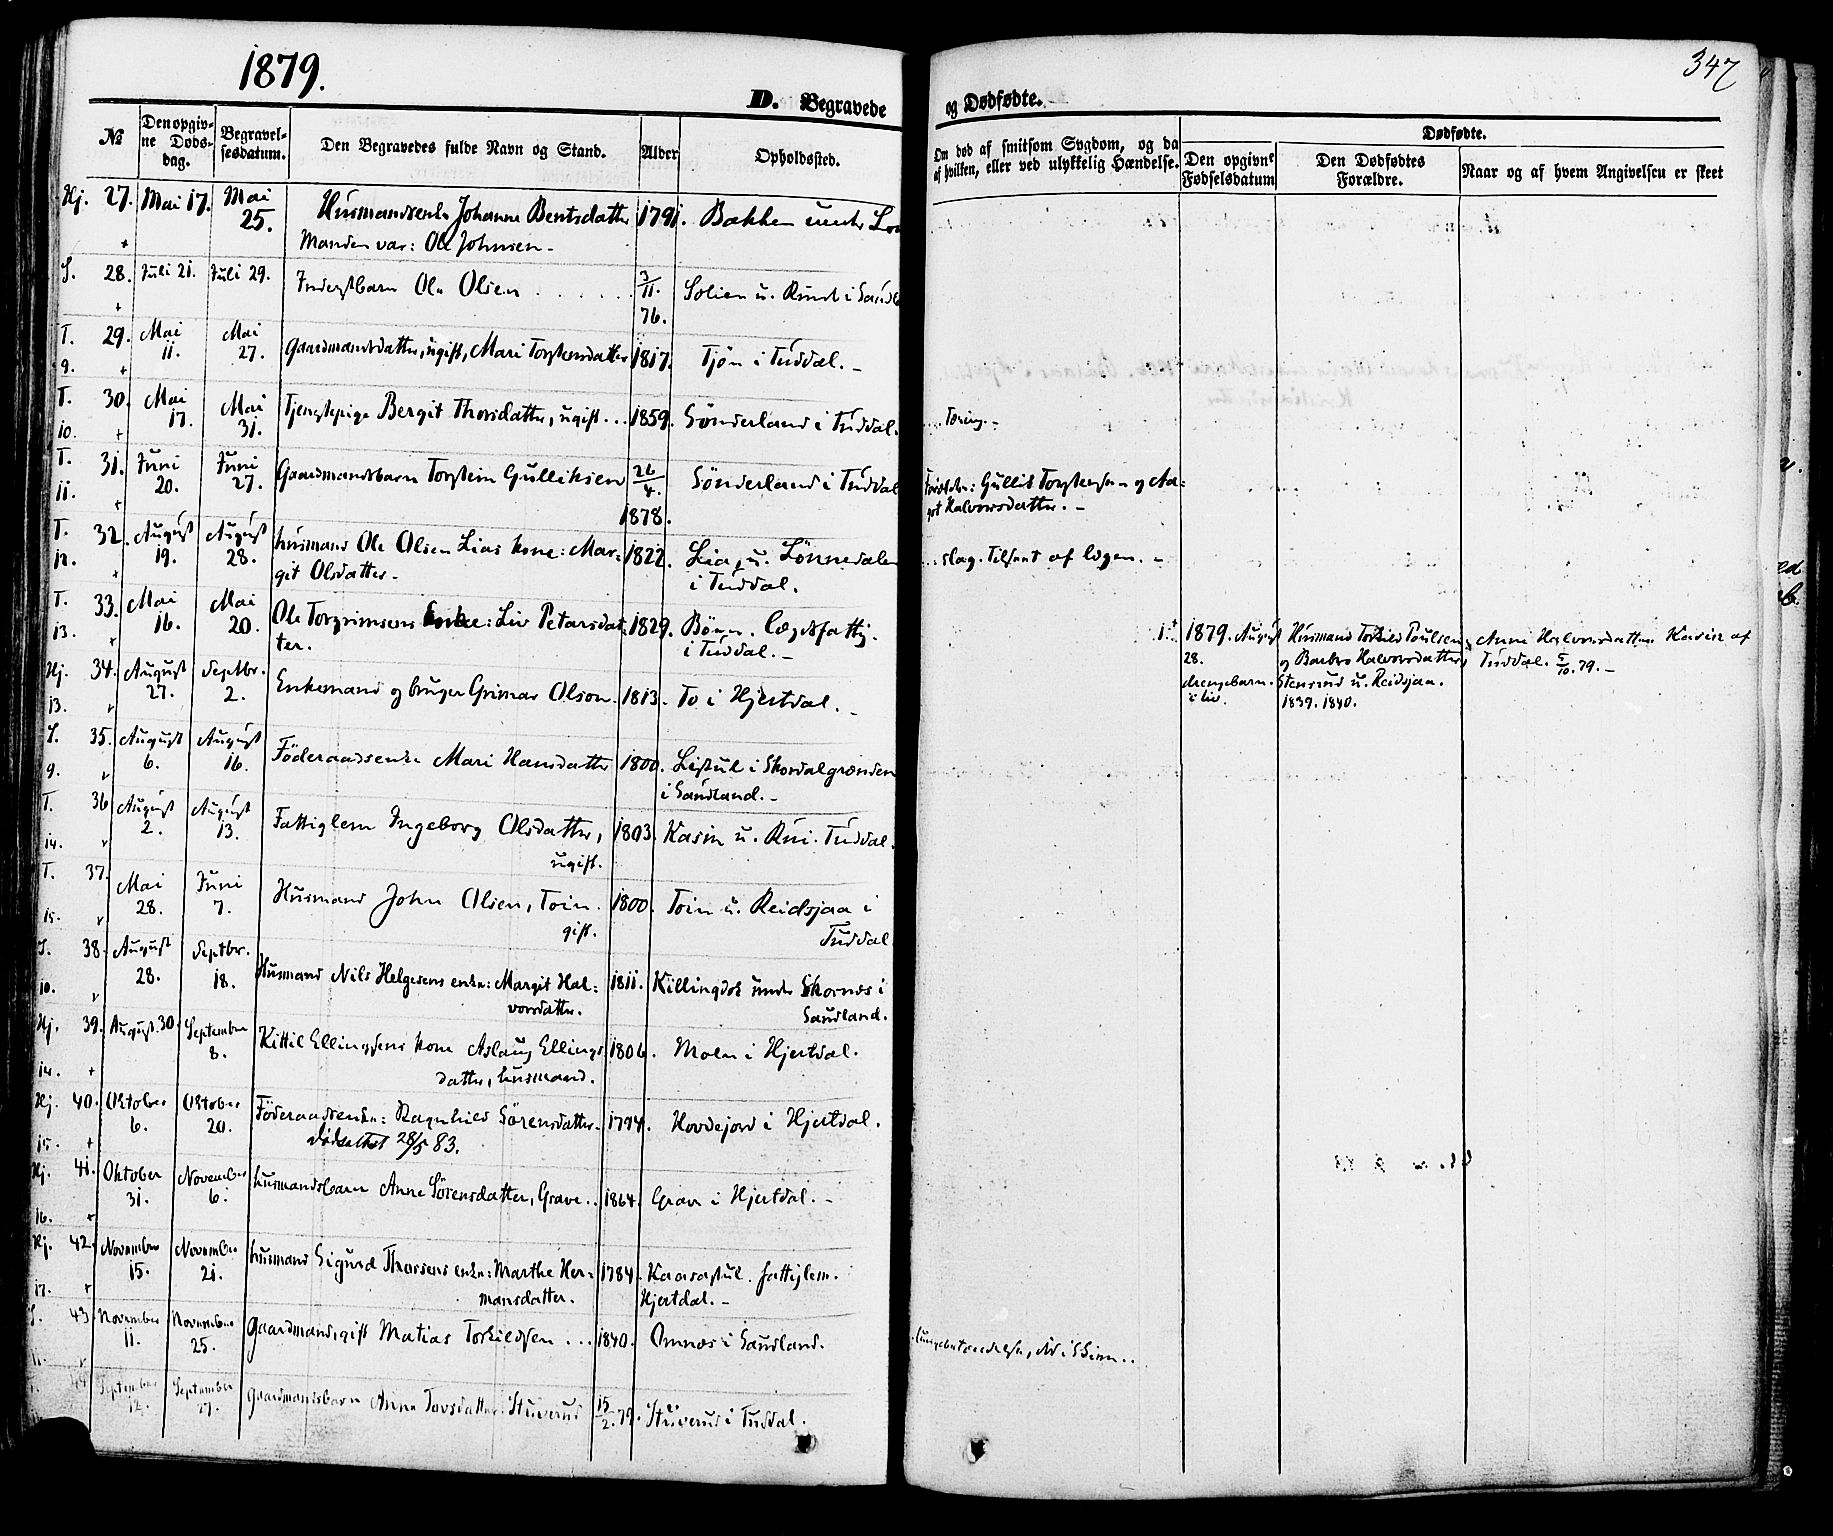 1879.
D. Begravede
№
Den opgiv-
ne Døds-
dag.
Begravel-
sesdatum.
Den Begravedes fulde Navn og Stand.
Alder
Opholdssted.
Hj. 27. Mai 17. Mai 25. Husmandsenke Johanne Bentsdatter 1791. Bakken under
Manden var: Ole Johnsen -
S. 28. Juli 21. Juli 29. Inderstbarn Ole Olsen 3/11. 76. Solien u. Rund i
T. 29. Mai 11. Mai 27. Gaardmandsdatter, ugift, Mari Torstensdatter 1817. Tjön i Tuddal. -
9.
T. 30. Mai 17. Mai 31. Tjenestepige Bergit Thorsdatter, ugift... 1859. Sönderland i Tuddal.
10.
T. 31. Juni 20. Juni 27. Gaardmandsbarn Torstein Gulliksen 26/4. 1878. Sönderland i Tuddal
11.
T. 32. August 19. August 28. Husmand Ole Olsen Lias kone: Mar-
git Olsdatter - 1822. Lia, u. Lönnedalen
i Tuddal.
12.
T. 33. Mai 16. Mai 20. Ole Torgrimsens Enke: Liv Petersdat-
ter. 1829. lægdsfattig.
i Tuddal. -
13.
Hj. 34. August 27. Septbr. 2. Enkemand og bruger Grimar Olson. 1813. To i Hjertdal. -
13.
S. 35. August 6. August 16. Föderaadsenke Mari Hansdatter 1800. Listul i Skordalgrænden
i Saudland. -
9.
T. 36 August 2. August 13. Fattiglem Ingeborg Olsdatter,
ugift. 1803. Kasin u. Rui. Tuddal.
14.
T. 37. Mai 28. Juni 7. Husmand John Olsen, Toin.
gift. 1800. Toin u. Reidsjaa i
Tuddal.
15.
S. 38. August 28. Septbr. 18. Husmand Nils Helgesens enke: Margit Hal-
vorsdatter. 1811. Killingdok under Skornes i
Saudland.
10.
Hj. 39. August 30. September 8. Kittil Ellingsens kone Aslaug Ellings
datter, husmand. 1806. Moen i Hjertdal.
14.
Hj. 40. Oktober 6. Oktober 20. Föderaadsenke: Ragnhild Sörensdatter. 1794. Hovdejord i Hjertdal.
dödsattest 28/5 83.
15.
Hj. 41. Oktober 31. November 6. husmandsbarn Anne Sörensdatter, Grave.. 1864. Grav i Hjertdal. -
16.
Hj. 42. November 15. November 21. husmand Sigurd Thorsens enke: Marthe Her-
mansdatter. 1784. Kaasastul. fattiglem.
Hjertdal. -
17.
S. 43. November 11. November 25. Gaardmand, gift Matias Torkildsen... 1840. Omnæs i Saudland.
11.
44 September 12. September 27. gaardmandsbarn Anne Tovsdatter Stuverud 15/2. 79. Stuverud i Tuddal.
347
og Dødfødte.
Om død af smitsom Sygdom, og da
af hvilken, eller ved ulykkelig Hændelse.
Dødfødte.
Den opgivne
Fødselsdatum
Den Dødfødtes
Forældre.
Naar og af hvem Angivelsen er skeet
Tæring. -
Forældre: Gullik Torstensen og Aa-
got Halvorsdatter. -
slag. Tilsent af lægen. -
1. 1879. August
28.
drengebarn.
Husmand Torkild Poulsen
og Barbro Halvorsdatter
Stensrud u. Reidsjaa.
1839. 1840.
Anne Halvorsdatter Kasin af
Tuddal. 5/10. 79. -
lungebetændelse, död i Skien..